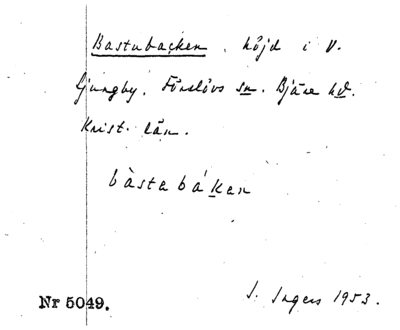 Bastubacken, höjd i V.
Ljungby. Förslövs sn. Bjäre hd.
Krist. län.
bàstabáken
Nr 5049.
I. Ingers 1953.